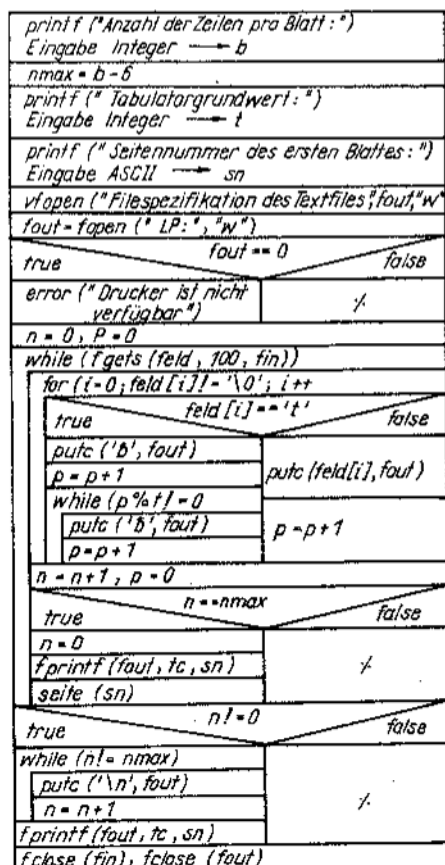 printf ("Anzahl der Zeilen pro Blatt:")
Eingabe Integer → b
nmax = b - 6
printf (" Tabulatorgrundwert: ")
Eingabe Integer → t
printf (" Seitennummer des ersten Blattes: ")
Eingabe ASCII → sn
vfopen ("Filespezifikation des Textfiles", fout, "w"
fout = fopen (" LP:", "w")
fout == 0
true false
error (" Drucker ist nicht
verfügbar")
%
n = 0, P = 0
while (fgets (feld, 100, fin))
for (i=0; feld [i] != '\0'; i++
feld [i] == 't'
true false
putc ('ƀ', fout)
p = p+1
while (p % t != 0
putc ('ƀ', fout)
p = p+1
putc (feld[i], fout)
p = p+1
n = n+1, p = 0
n == nmax
true false
n = 0
fprintf (fout, tc, sn)
seite (sn)
%
n != 0
true false
while (n != nmax)
putc ('\n', fout)
n = n+1
fprintf (fout, tc, sn)
%
fclose (fin), fclose (fout)